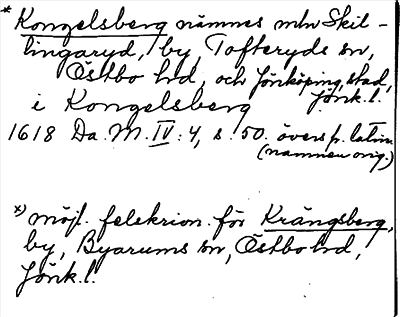 * Kongelsberg nämnes mln Skil-
lingaryd, by, Tofteryds sn,
Östbo hd, och Jönköping, stad,
Jönk. l.
i Kongelsberg
1618 Da. M. IV: 4, s. 50. övers fr. latin.
(namnen orig.)
*) möjl. felskrivn. för Krängsberg,
by, Byarums sn, Östbo hd,
Jönk. l.